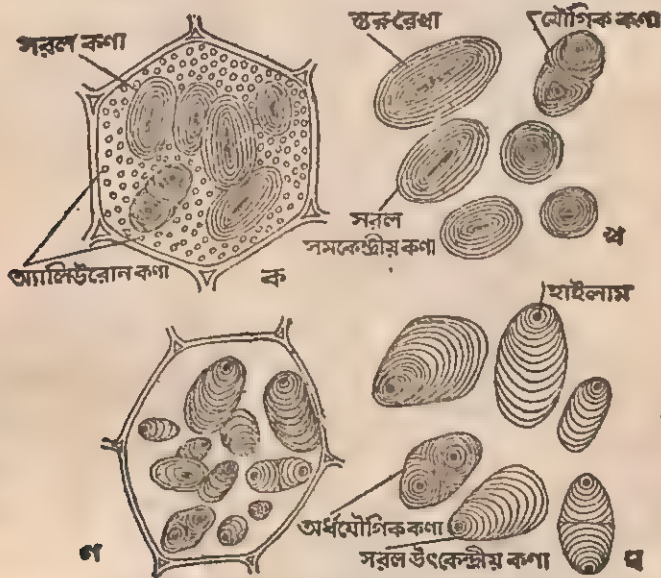 সরল কণা
স্তর রেখা
যৌগিক কণা
সরল
সমকেন্দ্রীয় কণা
অ্যালিউরোন কণা
ক
খ
হাইলাম
অর্ধযৌগিক কণা
সরল উৎকেন্দ্রীয় কণা
গ
ঘ